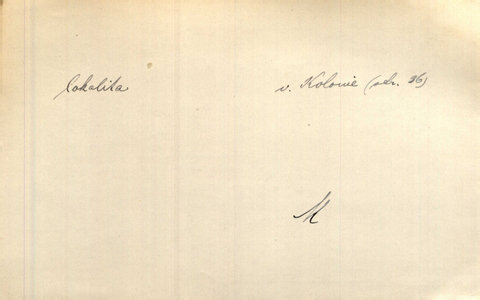 lokalita v. Kolonie (odr. 36)
M